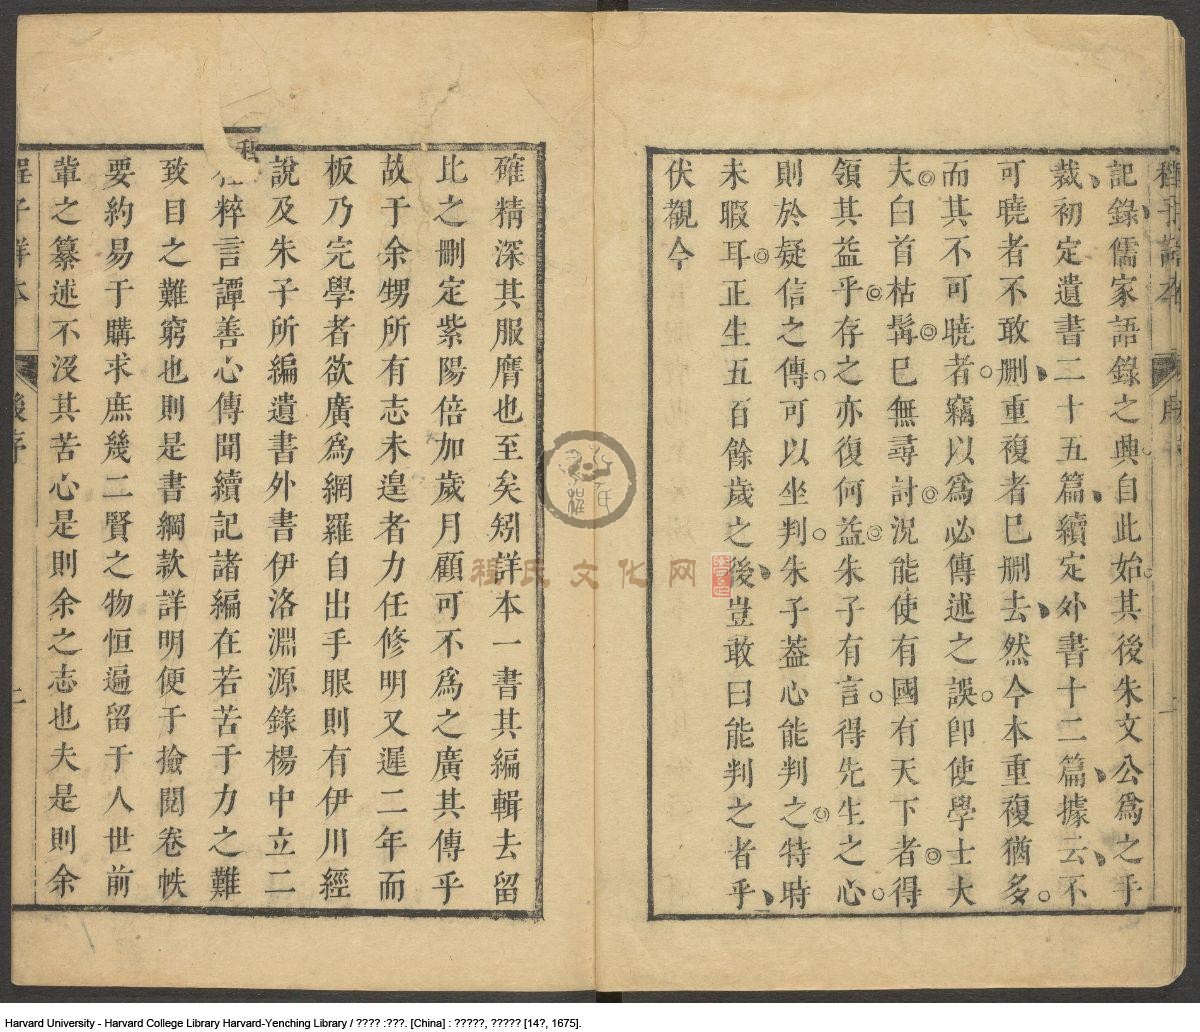 程子詳本
記錄儒家語錄之典自此始其後朱文公爲之手
裁初定遺書二十五篇續定外書十二篇據云不
可曉者不敢删重複者巳删去然今本重複猶多
而其不可曉者竊以爲必傳述之誤卽使學士大
夫白首枯髯巳無尋討況能使有國有天下者得
領其益乎存之亦復何益朱子有言得先生之心
則於疑信之傳可以坐判朱子葢心能判之特時
未暇耳正生五百餘歲之後豈敢曰能判之者乎
伏觀今
確精深其服膺也至矣矧詳本一書其編輯去留
比之刪定紫陽倍加歲月顧可不爲之廣其傳乎
故于余甥所有志未遑者力任修明又遲二年而
板乃完學者欲廣爲網羅自出手眼則有伊川經
說及朱子所編遺書外書伊洛淵源錄楊中立二
程粹言譚善心傳聞續記諸編在若苦于力之難
致目之難窮也則是書綱款詳明便于撿閱卷帙
要約易于購求庶幾二賢之物恒遍留于人世前
輩之纂述不沒其苦心是則余之志也夫是則余
程子詳本 後序 二
程氏文化网
Harvard University - Harvard College Library Harvard-Yenching Library / ???? :???. [China] : ?????, ????? [14?, 1675].